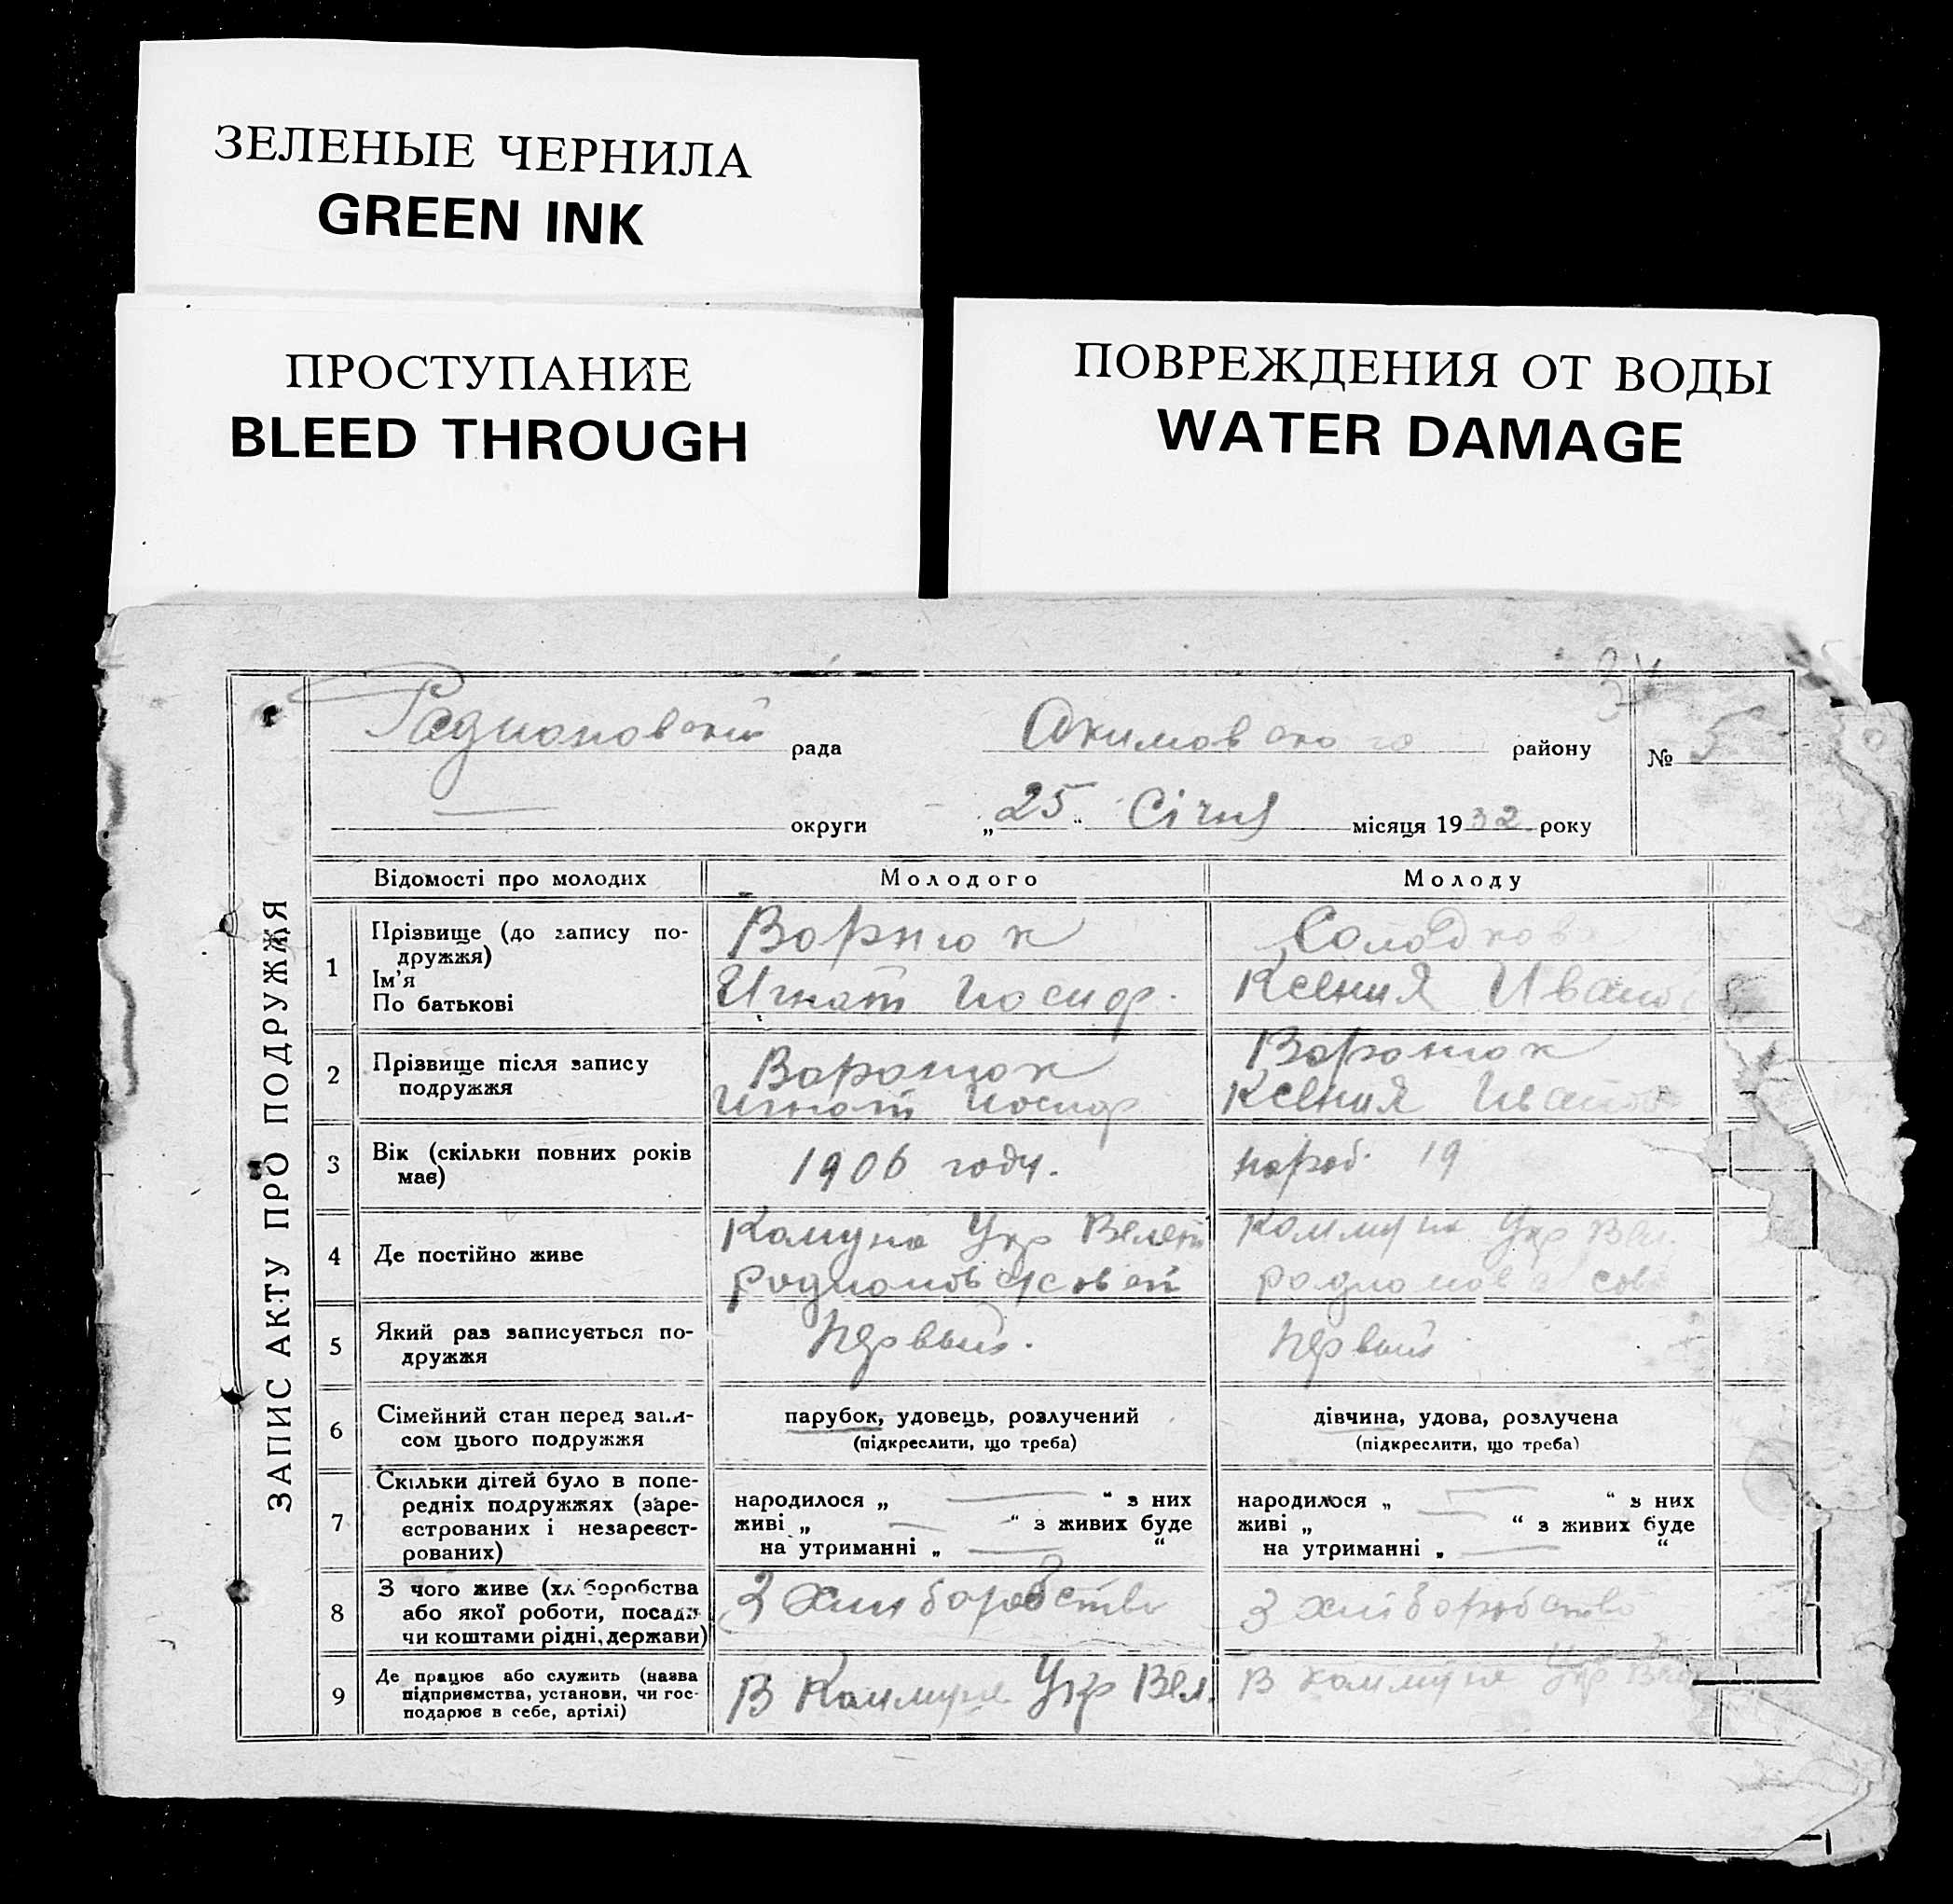 ЗЕЛЕНЫЕ ЧЕРНИЛА
GREEN INK
ПРОСТУПАНИЕ
BLEED THROUGH
ПОВРЕЖДЕНИЯ ОТ ВОДЫ
WATER DAMAGE
ЗАПИС АКТУ ПРО ПОДРУЖЖЯ
рада Акимовского району № 5
округи „25“ Січня місяця 1932 року
Відомості про молодих Молодого Молоду
1 Прізвище (до запису по-
дружжя)
Ім'я
По батькові
Ворнюк
Игнат Иосиф.
Солодкова
Ксения Иванов
2 Прізвище після запису
подружжя
Воронюк
Игнат Иосиф
Воронюк
Ксения Иванов
3 Вік (скільки повних років
має)
1906 году.
19
4 Де постійно живе
Комуна Укр
Коммуна Укр Вел.
5 Який раз записується по-
дружжя
Первый.
Первый
6 Сімейний стан перед запи-
сом цього подружжя
парубок, удовець, розлучений
(підкреслити, що треба)
дівчина, удова, розлучена
(підкреслити, що треба)
7 Скільки дітей було в попе-
редніх подружжях (заре-
єстрованих і незареєст-
рованих)
народилося „ — “ з них
живі „ — “ з живих буде
на утриманні „ — “
народилося „ — “ з них
живі „ — “ з живих буде
на утриманні „ — “
8 З чого живе (хліборобства
або якої роботи, посади
чи коштами рідні, держави)
З хлиборобства
З хлиборобства
9 Де працює або служить (назва
підприємства, установи, чи гос-
подарює в себе, артілі)
В Коммуне Укр Вел.
В коммуне Укр